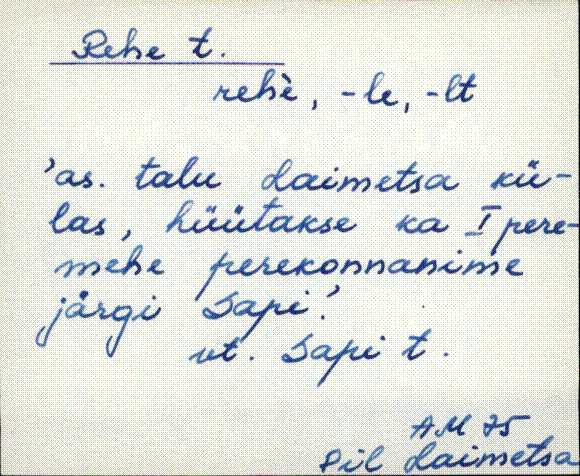 Rehe t.
rehè, -le, -lt
'as. talu Laimetsa kü-
las, hüütakse ka I pere-
mehe perekonnanime
järgi Sapi.'
vt. Sapi t.
AM 75
Pil Laimetsa